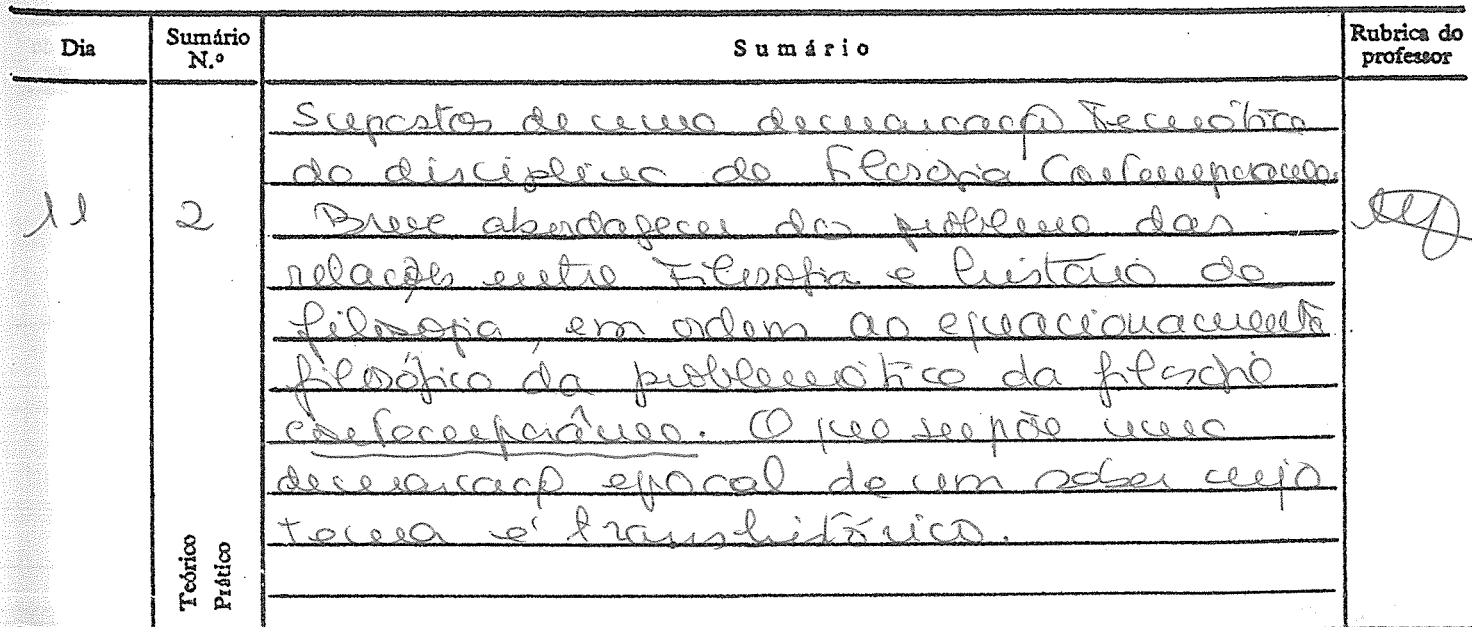 Dia Sumário N.º Sumário Rubrica do professor
Supostos de uma demarcação temática
da disciplina de Filosofia Contemporânea.
11 2 Breve abordagem do problema das
relações entre Filosofia e história da
filosofia em ordem ao equacionamento
filosófico da problemática da filosofia
contemporânea. O que supõe uma
demarcação epocal de um saber cujo
tema é transhistórico.
Teórico
Prático